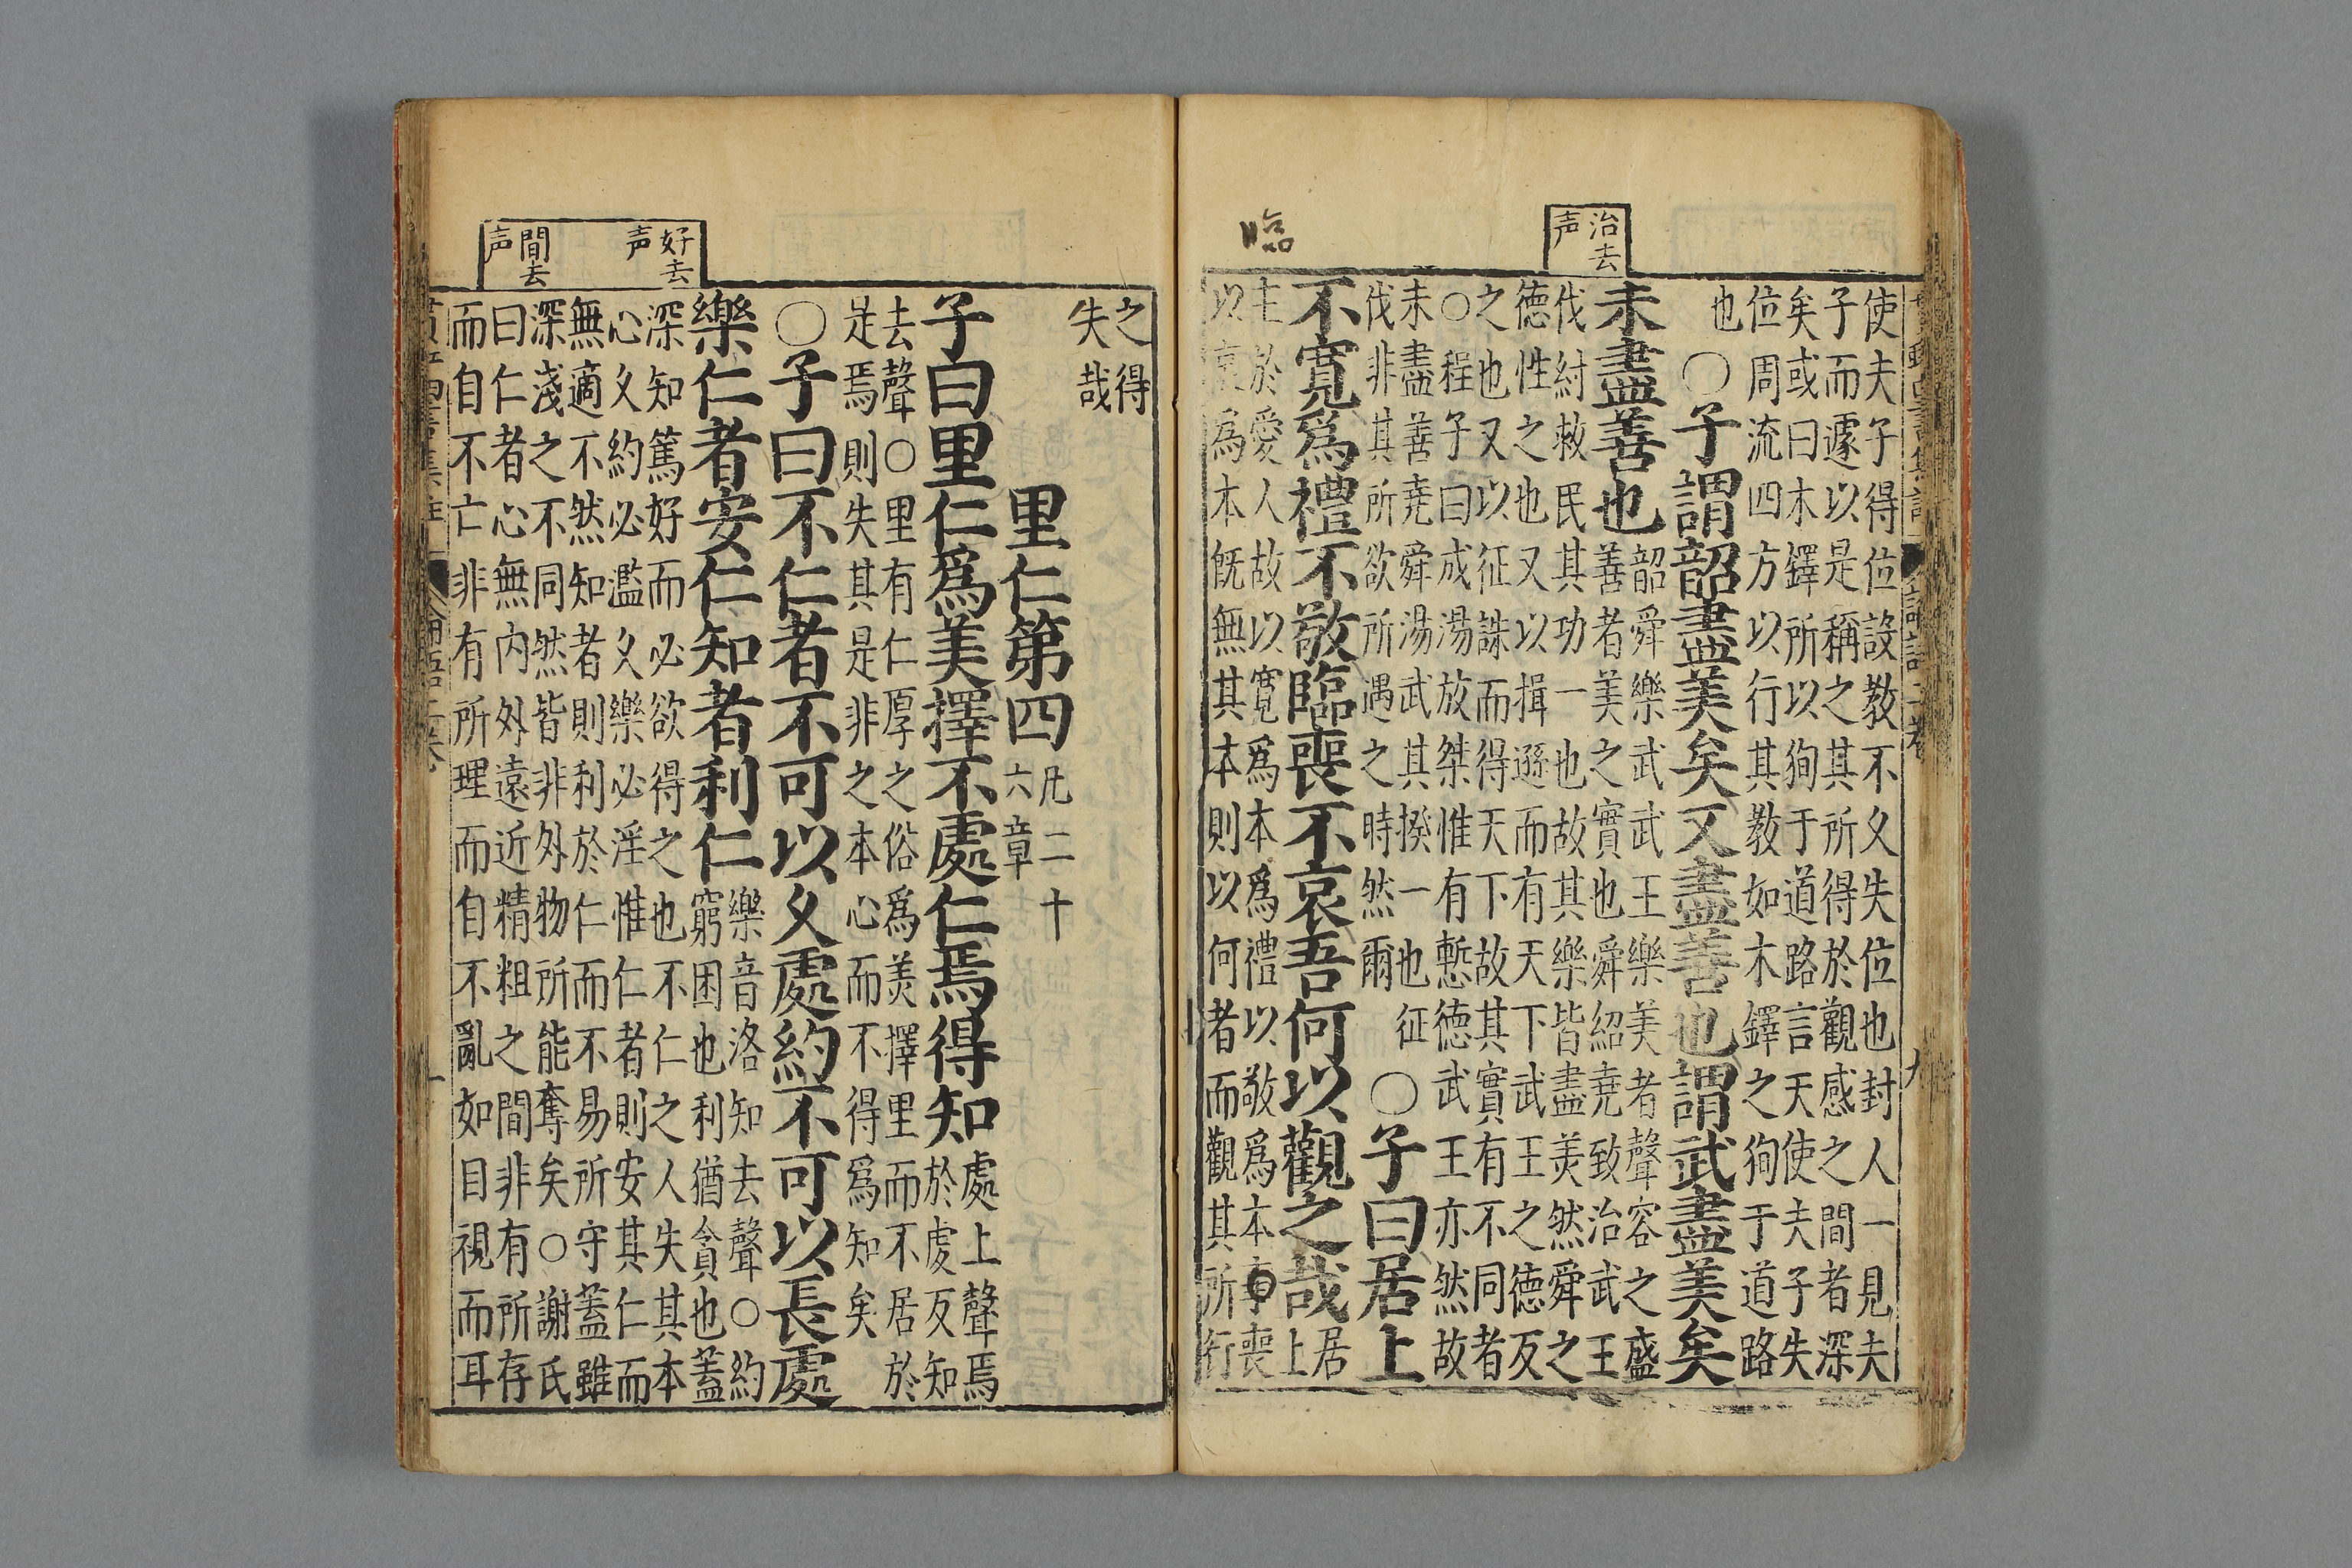 治去
声
臨
使夫子得位設敎不久失位也封人一見夫
子而遽以是稱之其所得於觀感之間者深
矣或曰木鐸所以狥于道路言天使夫子失
位周流四方以行其敎如木鐸之狥于道路
也
〇子謂韶盡美矣又盡善也謂武盡美矣
未盡善也
韶舜樂武武王樂美者聲容之盛
善者美之實也舜紹堯致治武王
伐紂救民其功一也故其樂皆盡美然舜之
德性之也又以揖遜而有天下武王之德反
之也又以征誅而得天下故其實有不同者
〇程子曰成湯放桀惟有慙德武王亦然故
未盡善堯舜湯武其揆一也征
伐非其所欲所遇之時然爾
〇子曰居上
不寬爲禮不敬臨喪不哀吾何以觀之哉
居
上
主於愛人故以寬爲本爲禮以敬爲本喪
以哀爲本旣無其本則以何者而觀其所行
好去
声
間去
声
之得
失哉
里仁第四
凡二十
六章
子曰里仁爲美擇不處仁焉得知
處上聲焉
於虔反知
去聲〇里有仁厚之俗爲美擇里而不居於
是焉則失其是非之本心而不得爲知矣
〇子曰不仁者不可以久處約不可以長處
樂仁者安仁知者利仁
樂音洛知去聲〇約
窮困也利猶貪也蓋
深知篤好而必欲得之也不仁之人失其本
心久約必濫久樂必淫惟仁者則安其仁而
無適不然知者則利於仁而不易所守蓋雖
深淺之不同然皆非外物所能奪矣〇謝氏
曰仁者心無內外遠近精粗之間非有所存
而自不亡非有所理而自不亂如目視而耳